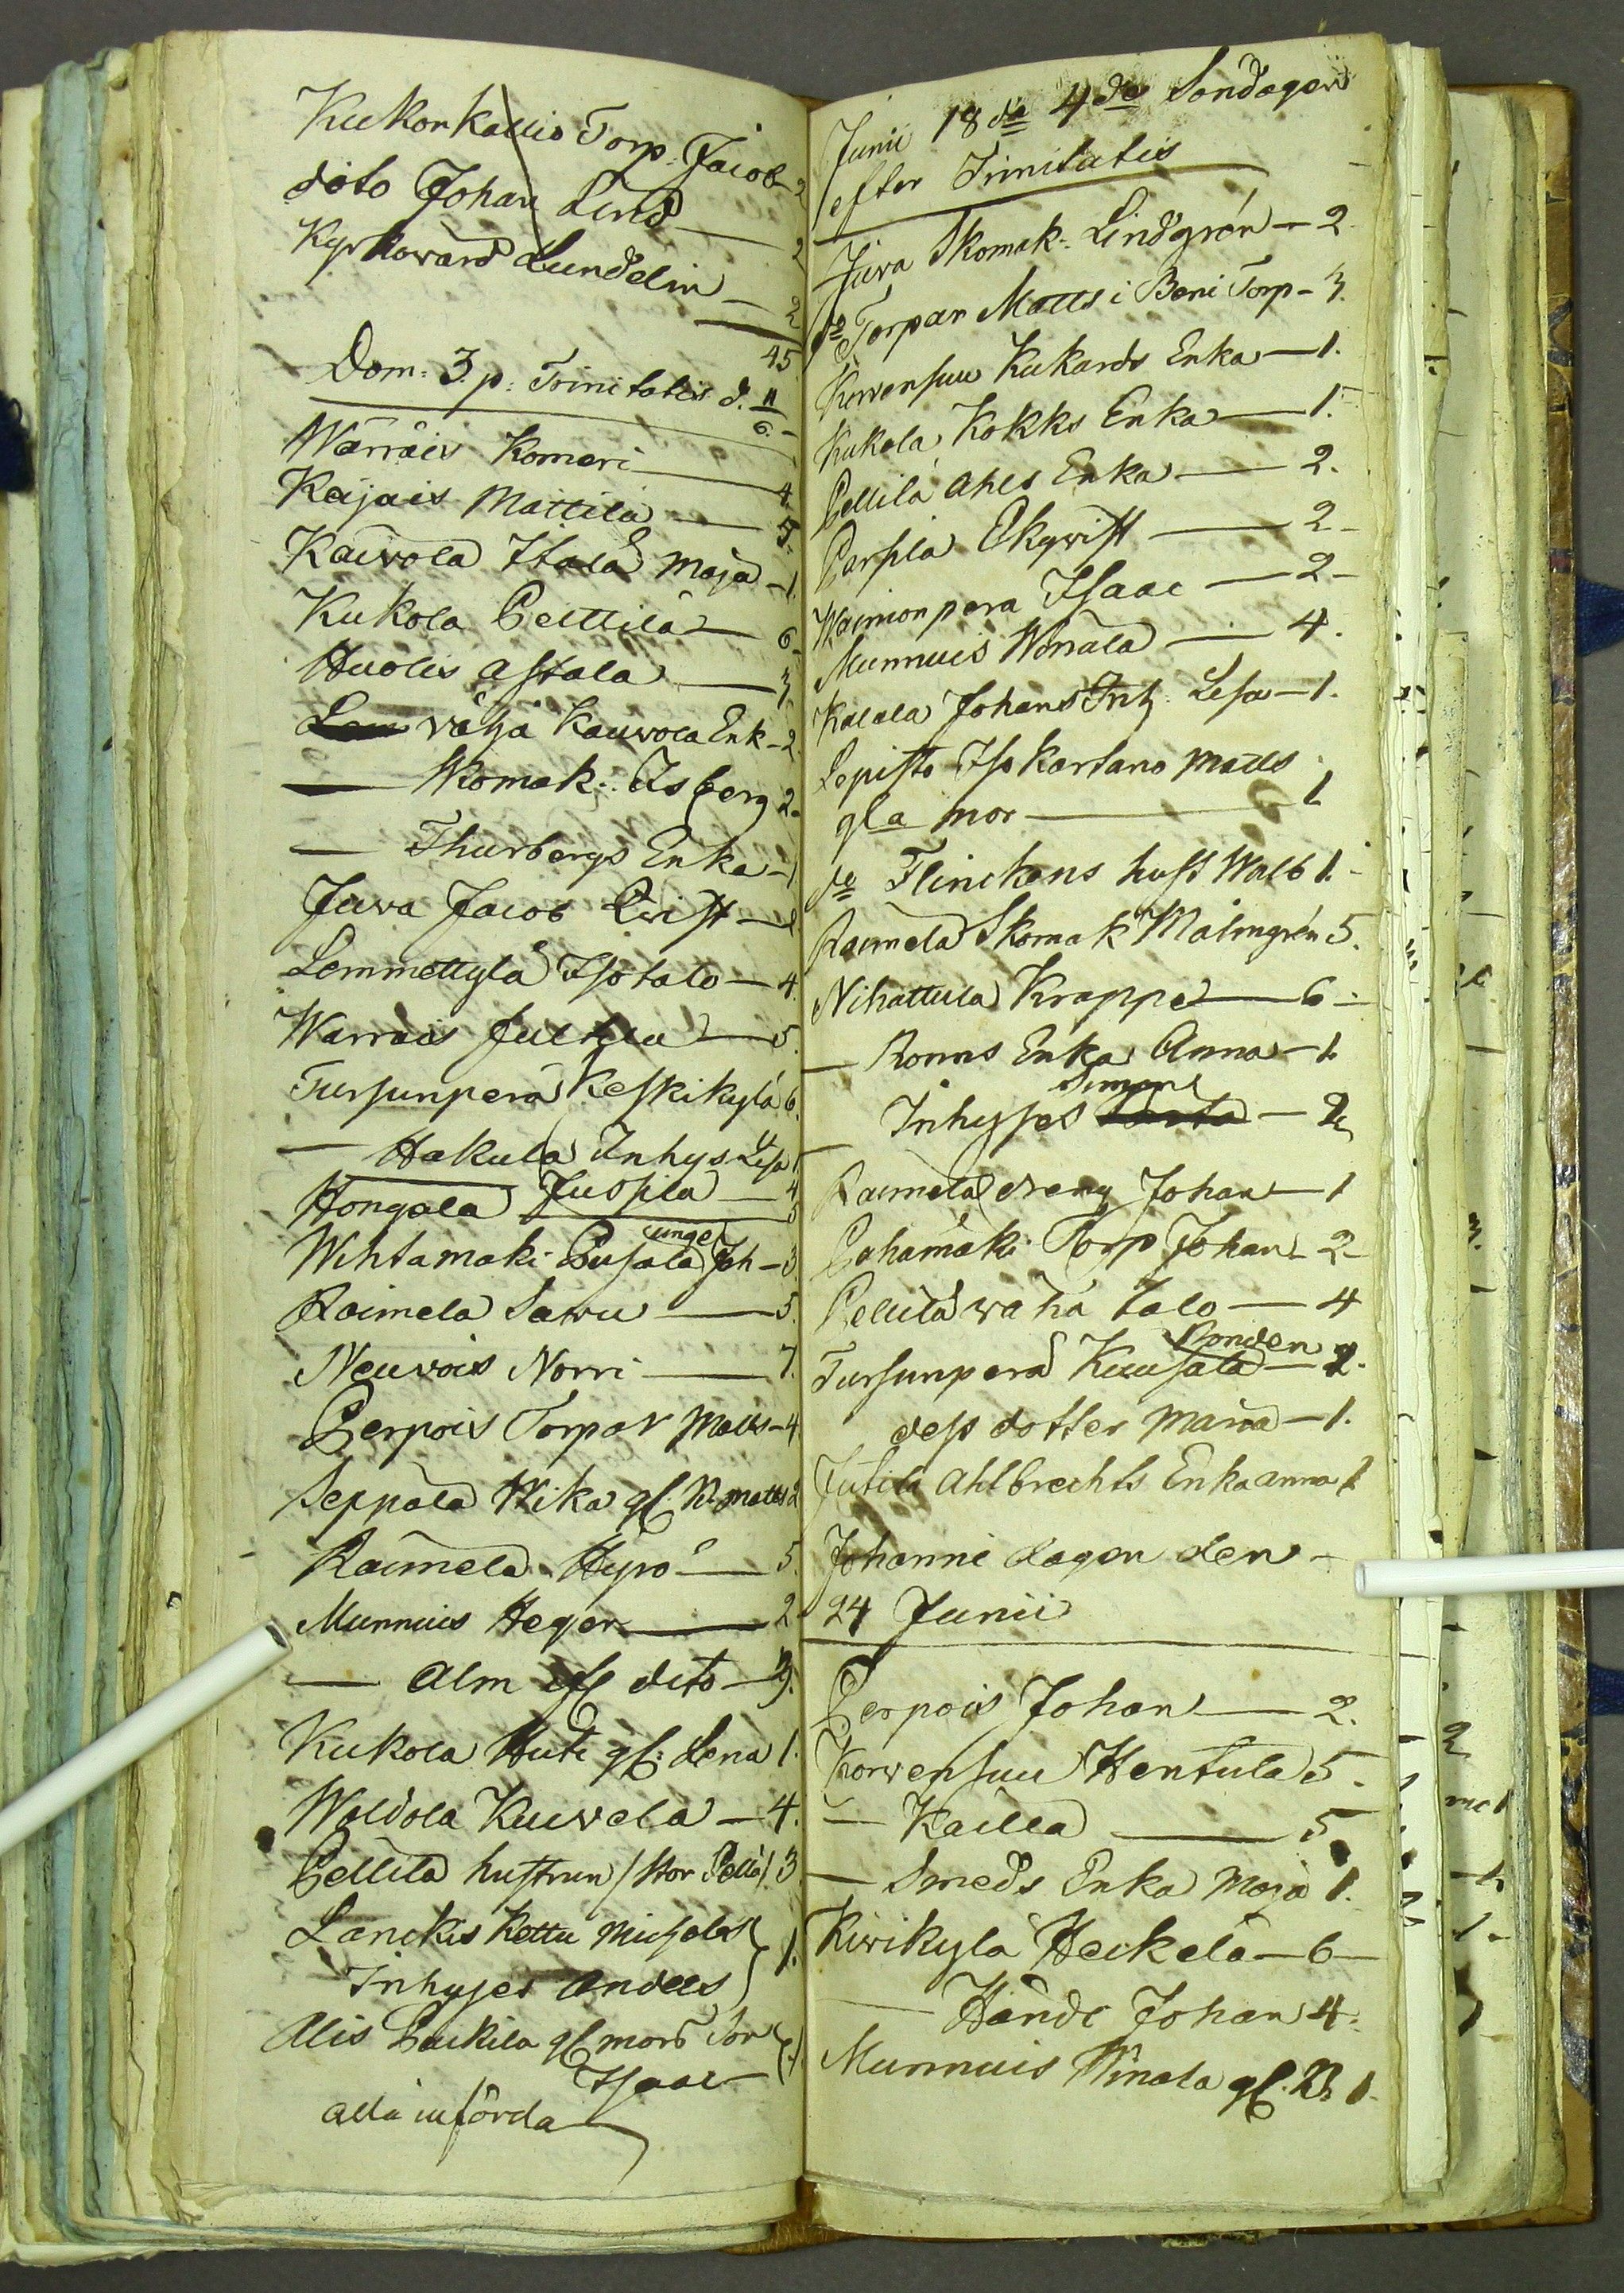 Kukonkallio Torp. Jacob 2
dito Johan Lind — 2
Kyrkoward Lundelin — 2
45
Dom: 3. p: Trinitatis d. 11/6.
Wärrais Komeri — 4
Kajais Mattila — 5.
Kauvola Itala Maja — 1.
Kukola Pelttilä — 6.
Huolis Astala — 3
vähä Kauvola Enk — 2.
— Skomak: Isberg 2.
— Thurbergs Enka — 1
Juva Jacob Qvist —
Lemmettylä Isotalo — 4.
Warrais — 5.
Tursunperä Keskikylä 6.
— Hakula Inhys Lisa 1
Hongola Juspila — 4
Wihtamäki Pusala unge Joh — 3.
Raimela Sawu — 5.
Neuvois Norri — 7.
Perpois Torpar Matts — 4.
Seppälä Wika gl. W. Matts 2
Raimela Hypö — 5.
Munnuis Heger — 2.
— Alm gl dito — 3.
Kukola Huti gl: Lena 1.
Waldola Kuuvela — 4.
Pellilä hustrun / Stor Pellä / 3
Lanckis Kottu Michels
Inhyses Anders } 1.
Alis Laikila gl mors son
Isaac } 1.
alla införda
Junii 18da 4de Söndagen
efter Trinitatis
Juva Skomak: Lindgrén — 2.
do Torpar Matts i Beni Torp — 3.
Korvensuu Kukards Enka — 1.
Kukola Kokks Enka — 1.
Pellilä Ahls Enka — 2.
Parsila Ekqvist — 2 —
Wainionpera Isaac — 2 —
Munnuis Wänälä — 4.
Kalala Johans Lisa — 1.
Lepistö Isokartano Matts
gla mor — 1
do Flinckens hust Walb 1.
Raimela Skomak Malmgrén 5.
Nihattula Krappe — 6 —
— Ronns Enka Anna — 1.
Simon
— Inhyses — 2
Raimela dreng Johan — 1
Pahamäki Torp Johan — 2 —
Pellilä wähä Talo — 4
Bonden
Tursunperä Kuusala — 2.
dess dotter Maria — 1.
Jutila Ahlbrechts Enka Anna 1
Johanne dagen den
24 Junii
Perpois Johan — 2.
Korvensuu Hentula 5.
— Kailla — 5
— Smeds Enka Maja 1.
Kivikylä Heikelä — 6 —
— Hände Johan 4.
Munnuis Winala gl. B. 1.